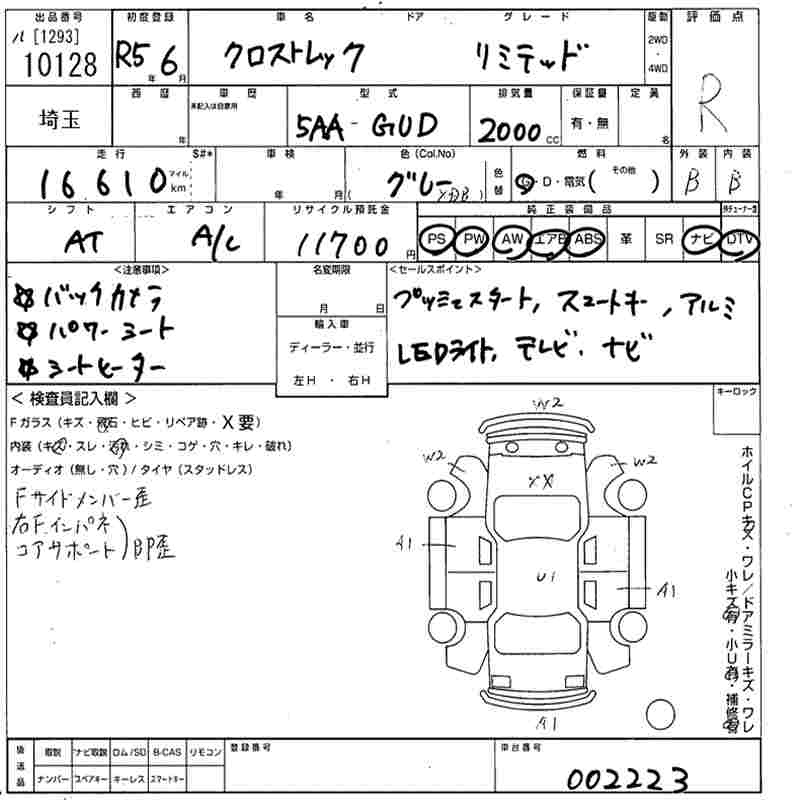 出品番号 初度登録 車名 ドア グレード 駆動 評価点
ル [1293] 10128 R5年 6月 クロストレック リミテッド 2WD・4WD R
埼玉 西暦 年 車歴 未記入は自家用 型式 5AA-GUD 排気量 2000cc 保証書 有・無 定員 名
走行 S#* 車検 色(Col,No) 色替 燃料 その他 外装 内装
16,610 マイル km 年 月 グレー (XBB) G・D・電気( ) B B
シフト エアコン リサイクル預託金 純正装備品
AT A/C 11700円 PS PW AW エアB ABS 革 SR ナビ DTV
<注意事項> 名変期限 <セールスポイント>
☆バックカメラ 月 日 プッシュスタート, スマートキー, アルミ
☆パワーシート 輸入車 LEDライト, テレビ, ナビ
☆シートヒーター ディーラー・並行
左H・右H
<検査員記入欄> キーロック
Fガラス(キズ・飛石・ヒビ・リペア跡・X要)
内装(キズ・スレ・汚れ・シミ・コゲ・穴・キレ・破れ)
オーディオ(無し・穴)/タイヤ(スタッドレス)
Fサイドメンバー歪
右Fインパネ
コアサポート)BP歪
W2
W2 W2
XX
A1 U1 A1
A1
ホイルCPキズ・ワレ/ドアミラーキズ・ワレ
小キズ有・小U有・補修有
後送品 取説 ナビ取説 ロム/SD B-CAS リモコン 登録番号 車台番号
ナンバー スペアキー キーレス スマートキー 002223